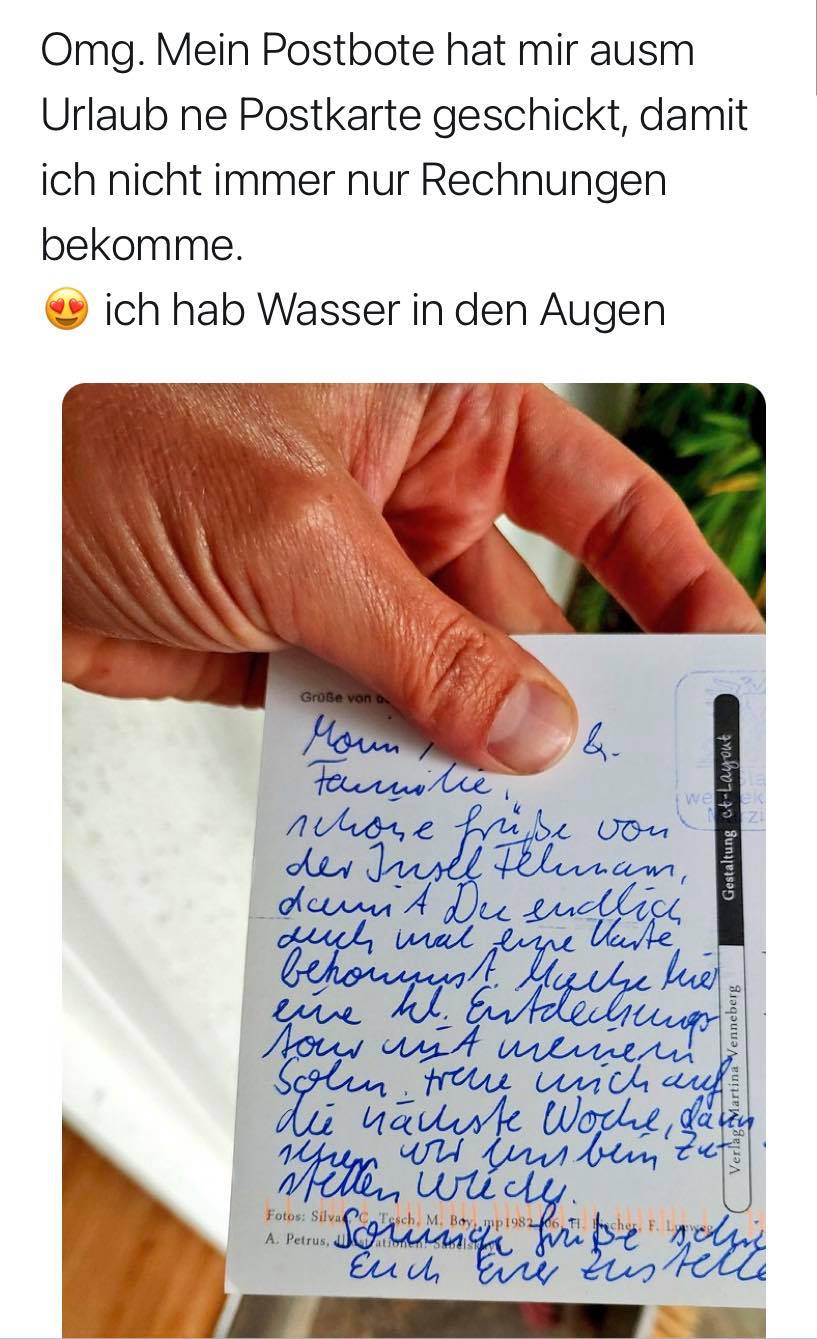 Omg. Mein Postbote hat mir ausm
Urlaub ne Postkarte geschickt, damit
ich nicht immer nur Rechnungen
bekomme.
😍 ich hab Wasser in den Augen
Grüße von
Moin &
Familie,
schöne Grüße von
der Insel Fehmarn,
damit Du endlich
auch mal eine Karte
bekommst. Mache hier
eine kl. Entdeckungs
tour mit meinem
Sohn, freue mich auf
die nächste Woche, dann
sehen wir uns beim Zu
stellen wieder.
Fotos: Silva C. Tesch, M. Boy, mp1982
A. Petrus,
Sonnige Grüße
Euch Euer Zustelle
Gestaltung ct-Layout
Verlag Martina Venneberg